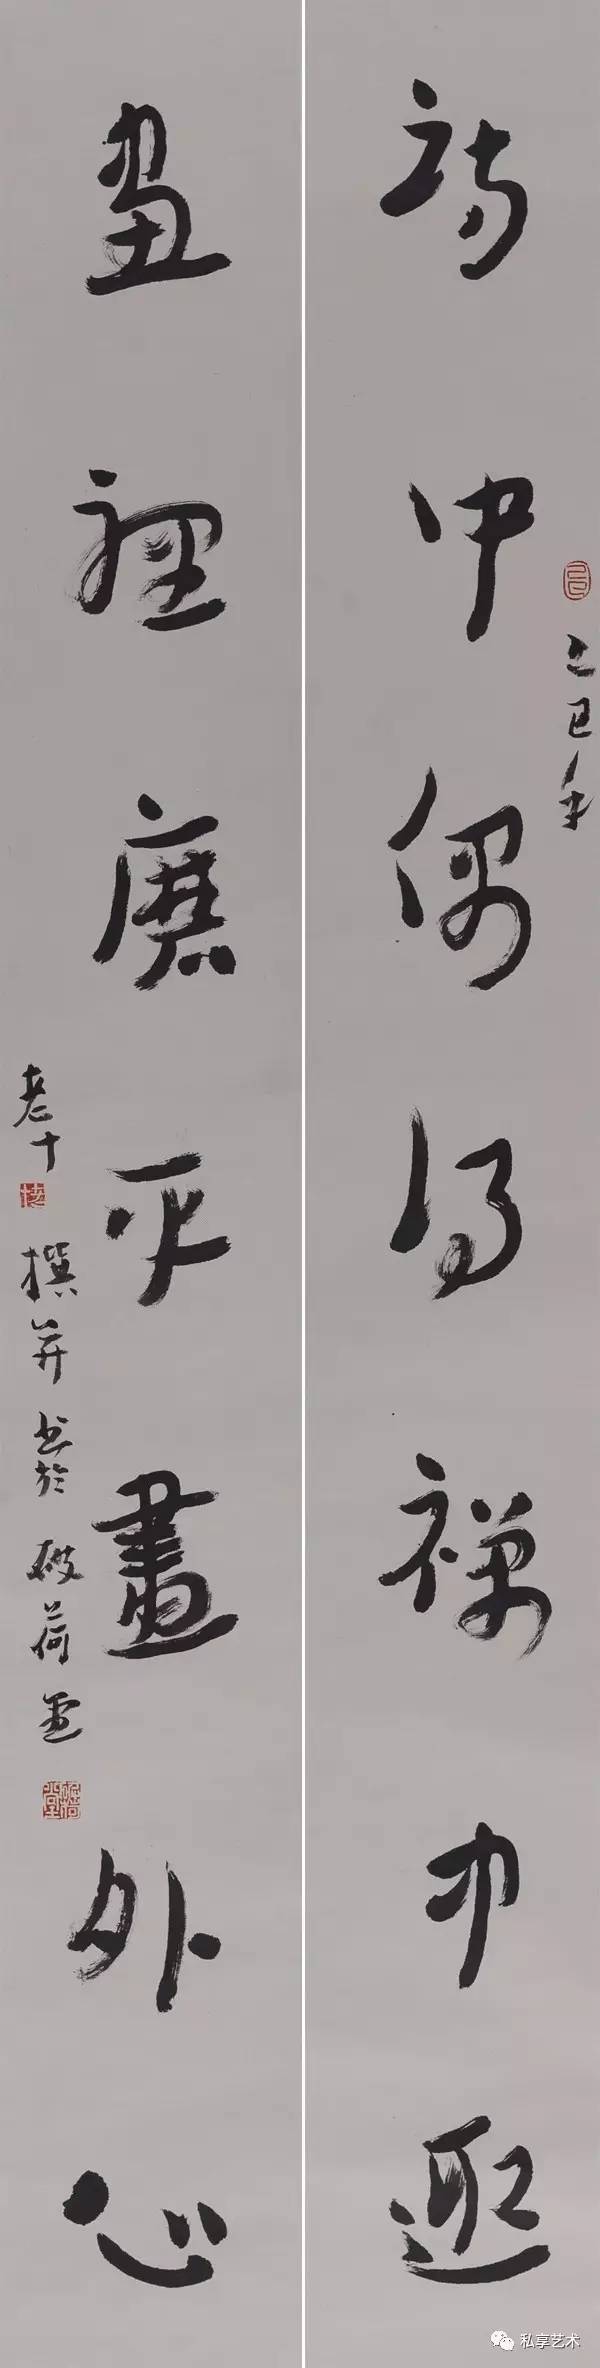 詩中偶得禪中趣
乙巳年
畫裡磨平畫外心
老十
撰并书於破荷堂
私享艺术